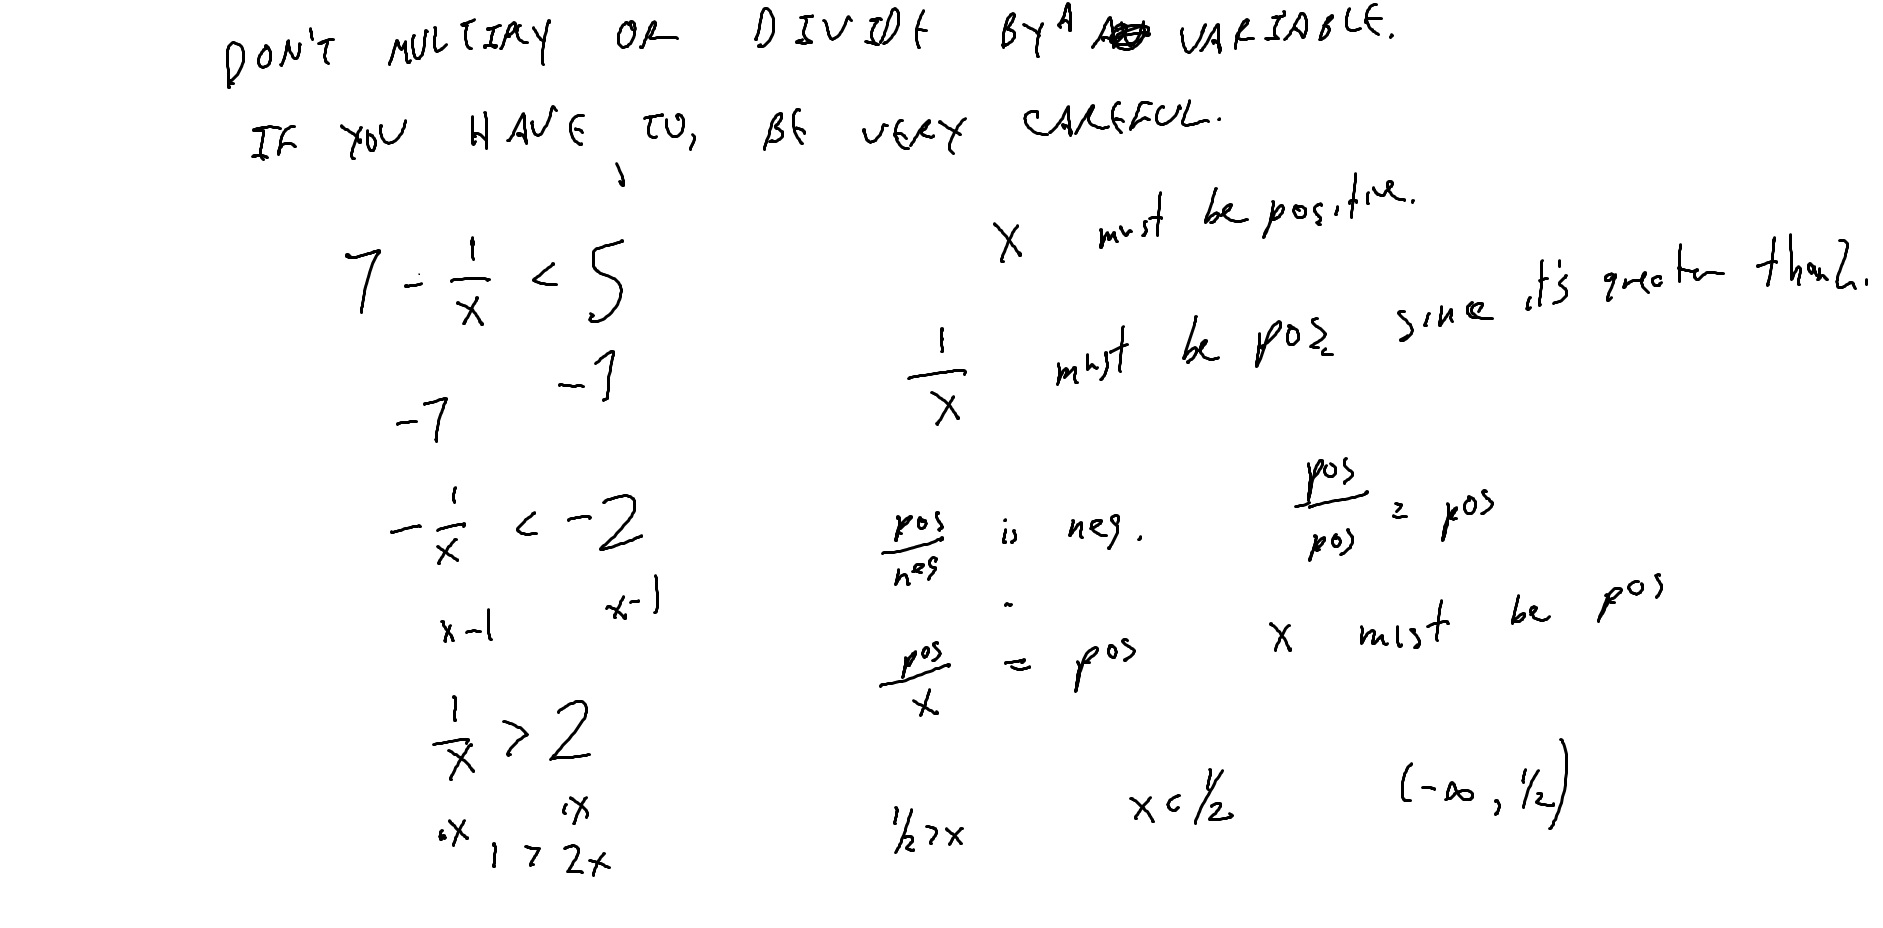 DON'T MULTIPLY OR DIVIDE BY A VARIABLE.
IF YOU HAVE TO, BE VERY CAREFUL.
7 - 1/x < 5
-7 -7
- 1/x < -2
x-1 x-1
1/x > 2
·x ·x
1 > 2x
x must be positive.
1/x must be pos since it's greater than 2.
pos/neg is neg. pos/pos = pos
pos/x = pos x must be pos
1/2 > x x < 1/2 (-∞, 1/2)